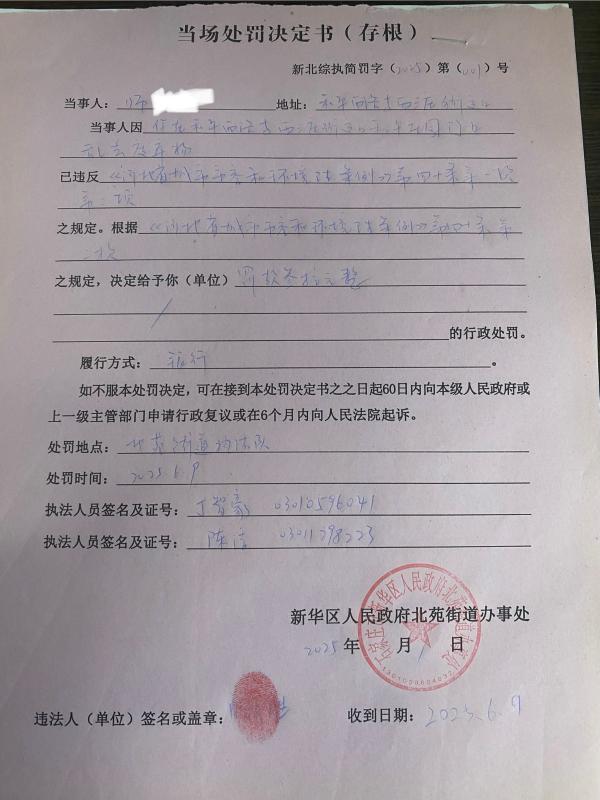 当场处罚决定书（存根）
新北综执简罚字（2025）第（001）号
当事人：师 地址：和平西路
当事人因 你在和平西路
已违反《河北省城市市容和环境卫生条例》第四十条第一项
第二项
之规定。根据《河北省城市市容和环境卫生条例》第四十条第
之规定，决定给予你（单位）罚款叁拾元整
的行政处罚。
履行方式：银行。
如不服本处罚决定，可在接到本处罚决定书之之日起60日内向本级人民政府或
上一级主管部门申请行政复议或在6个月内向人民法院起诉。
处罚地点：北苑街道执法队
处罚时间：2025.6.9
执法人员签名及证号：丁智豪 03010596041
执法人员签名及证号：陈洁 03011298223
新华区人民政府北苑街道办事处
2025年 月 日
违法人（单位）签名或盖章： 收到日期：2025.6.9